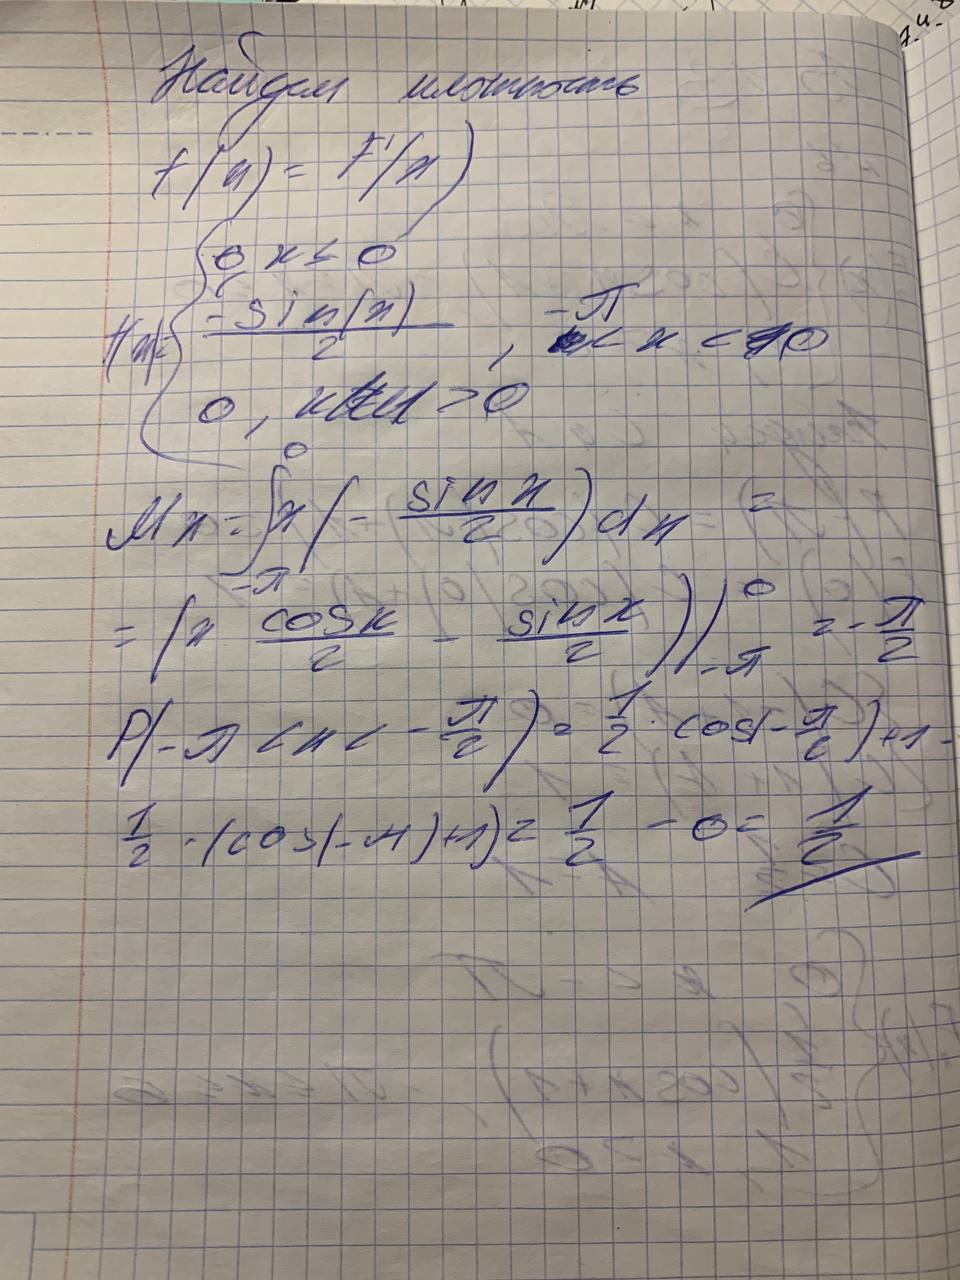 Найдем плотность
f(x) = F'(x)
0, x ≤ 0
f(x) = { -sin(x)/2, -π < x < 0
0, x > 0
Mx = ∫_{-π}^{0} x(- sin x/2) dx =
= (x cos x/2 - sin x/2)|_{-π}^{0} = - π/2
P(-π < x < - π/2) = 1/2 · cos(- π/2) + 1 -
1/2 · (cos(-π) + 1) = 1/2 - 0 = 1/2